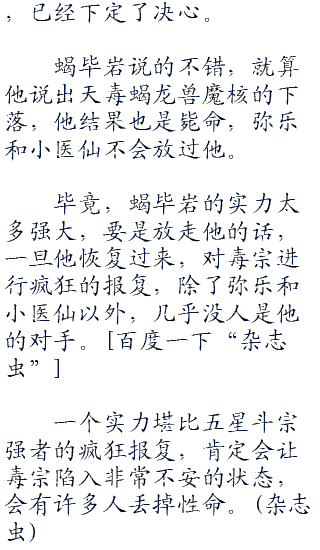 ，已经下定了决心。
蝎毕岩说的不错，就算
他说出天毒蝎龙兽魔核的下
落，他结果也是毙命，弥乐
和小医仙不会放过他。
毕竟，蝎毕岩的实力太
多强大，要是放走他的话，
一旦他恢复过来，对毒宗进
行疯狂的报复，除了弥乐和
小医仙以外，几乎没人是他
的对手。[百度一下“杂志
虫”]
一个实力堪比五星斗宗
强者的疯狂报复，肯定会让
毒宗陷入非常不安的状态，
会有许多人丢掉性命。(杂志
虫)